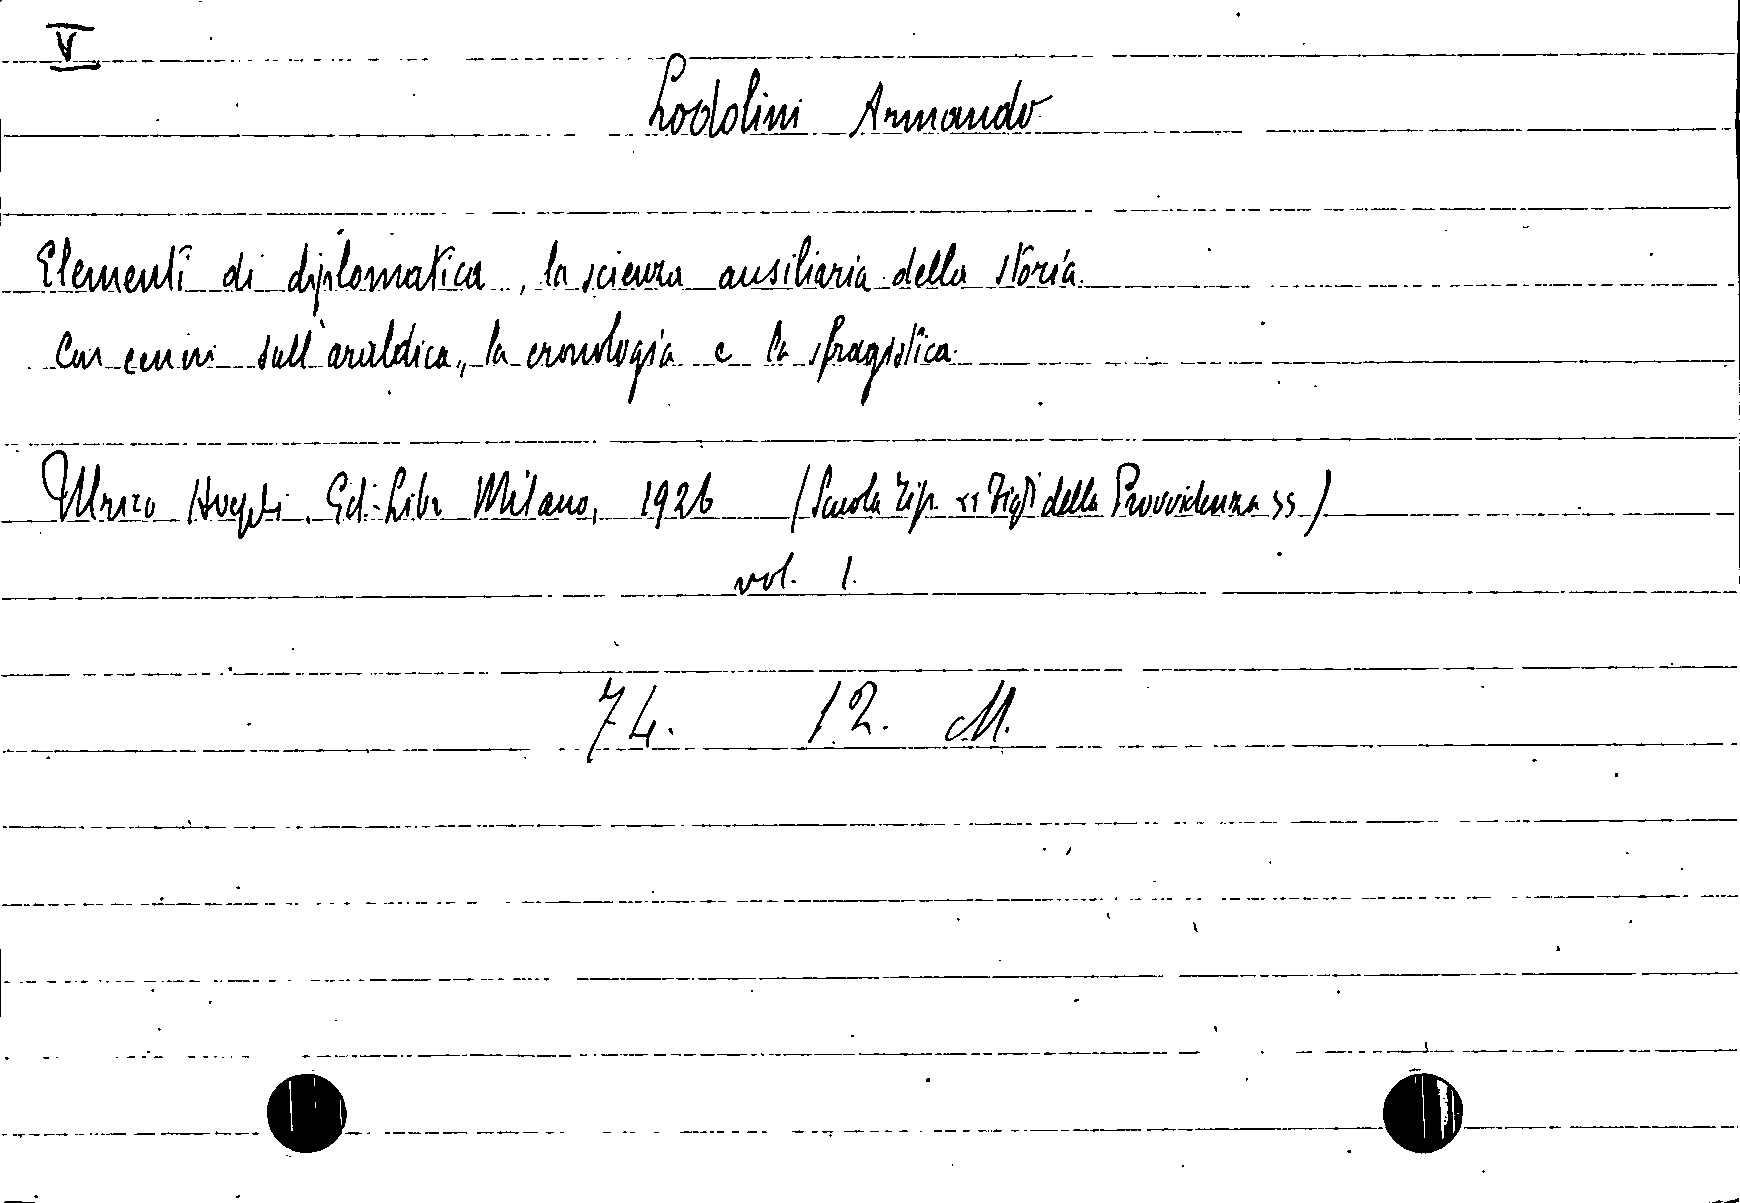 V
Lodolini Armando
Elementi di diplomatica, la scienza ausiliaria della storia.
Con cenni sull'araldica, la cronologia e la sfragistica.
Ulrico Hoepli. Edi. Libr Milano, 1926 (Scuola Tip. << Figli della Provvidenza >>)
vol. 1.
74. 12. M.